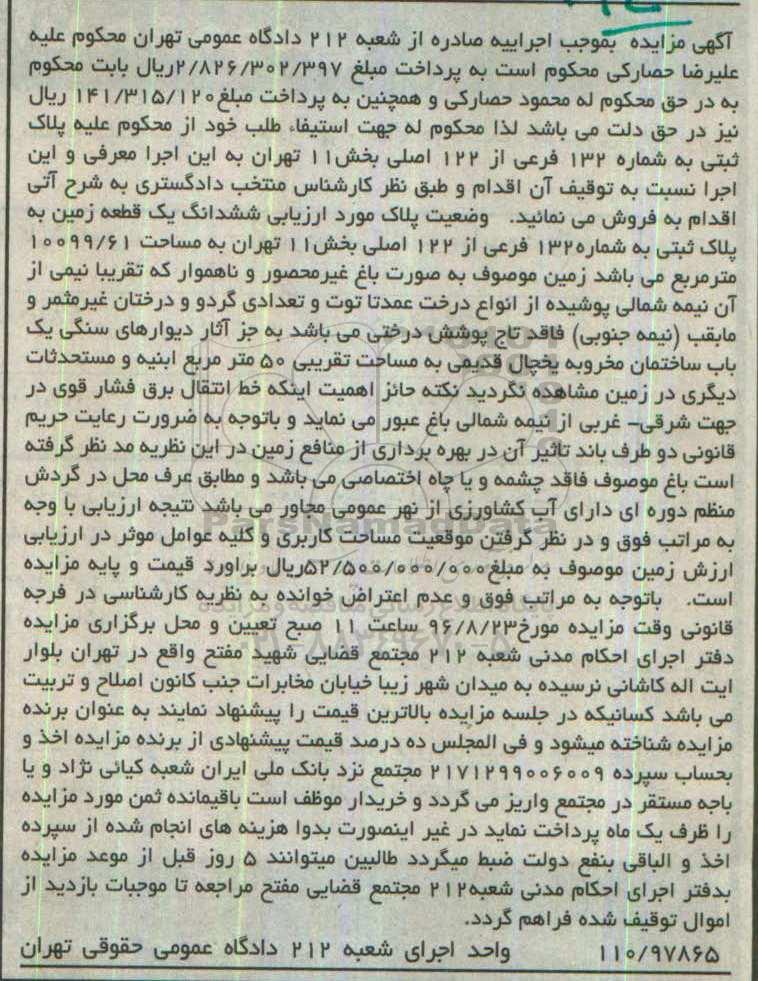 آگهی مزایده بموجب اجراییه صادره از شعبه ۲۱۲ دادگاه عمومی تهران محکوم علیه
علیرضا حصارکی محکوم است به پرداخت مبلغ ۲/۸۲۶/۳۰۲/۳۹۷ریال بابت محکوم
به در حق محکوم له محمود حصارکی و همچنین به پرداخت مبلغ۱۴۱/۳۱۵/۱۲۰ ریال
نیز در حق دلت می باشد لذا محکوم له جهت استیفاء طلب خود از محکوم علیه پلاک
ثبتی به شماره ۱۳۲ فرعی از ۱۲۲ اصلی بخش۱۱ تهران به این اجرا معرفی و این
اجرا نسبت به توقیف آن اقدام و طبق نظر کارشناس منتخب دادگستری به شرح آتی
اقدام به فروش می نمائید. وضعیت پلاک مورد ارزیابی ششدانگ یک قطعه زمین به
پلاک ثبتی به شماره۱۳۲ فرعی از ۱۲۲ اصلی بخش۱۱ تهران به مساحت ۱۰۰۹۹/۶۱
مترمربع می باشد زمین موصوف به صورت باغ غیرمحصور و ناهموار که تقریبا نیمی از
آن نیمه شمالی پوشیده از انواع درخت عمدتا توت و تعدادی گردو و درختان غیرمثمر و
مابقب (نیمه جنوبی) فاقد تاج پوشش درختی می باشد به جز آثار دیوارهای سنگی یک
باب ساختمان مخروبه یخچال قدیمی به مساحت تقریبی ۵۰ متر مربع ابنیه و مستحدثات
دیگری در زمین مشاهده نگردید نکته حائز اهمیت اینکه خط انتقال برق فشار قوی در
جهت شرقی- غربی از نیمه شمالی باغ عبور می نماید و باتوجه به ضرورت رعایت حریم
قانونی دو طرف باند تاثیر آن در بهره برداری از منافع زمین در این نظریه مد نظر گرفته
است باغ موصوف فاقد چشمه و یا چاه اختصاصی می باشد و مطابق عرف محل در گردش
منظم دوره ای دارای آب کشاورزی از نهر عمومی مجاور می باشد نتیجه ارزیابی با وجه
به مراتب فوق و در نظر گرفتن موقعیت مساحت کاربری و کلیه عوامل موثر در ارزیابی
ارزش زمین موصوف به مبلغ۵۲/۵۰۰/۰۰۰/۰۰۰ریال براورد قیمت و پایه مزایده
است. باتوجه به مراتب فوق و عدم اعتراض خوانده به نظریه کارشناسی در فرجه
قانونی وقت مزایده مورخ۹۶/۸/۲۳ ساعت ۱۱ صبح تعیین و محل برگزاری مزایده
دفتر اجرای احکام مدنی شعبه ۲۱۲ مجتمع قضایی شهید مفتح واقع در تهران بلوار
ایت اله کاشانی نرسیده به میدان شهر زیبا خیابان مخابرات جنب کانون اصلاح و تربیت
می باشد کسانیکه در جلسه مزایده بالاترین قیمت را پیشنهاد نمایند به عنوان برنده
مزایده شناخته میشود و فی المجلس ده درصد قیمت پیشنهادی از برنده مزایده اخذ و
بحساب سپرده ۲۱۷۱۲۹۹۰۰۶۰۰۹ مجتمع نزد بانک ملی ایران شعبه کیائی نژاد و یا
باجه مستقر در مجتمع واریز می گردد و خریدار موظف است باقیمانده ثمن مورد مزایده
را ظرف یک ماه پرداخت نماید در غیر اینصورت بدوا هزینه های انجام شده از سپرده
اخذ و الباقی بنفع دولت ضبط میگردد طالبین میتوانند ۵ روز قبل از موعد مزایده
بدفتر اجرای احکام مدنی شعبه۲۱۲ مجتمع قضایی مفتح مراجعه تا موجبات بازدید از
اموال توقیف شده فراهم گردد.
۱۱۰/۹۷۸۶۵ واحد اجرای شعبه ۲۱۲ دادگاه عمومی حقوقی تهران
ParsNamadData